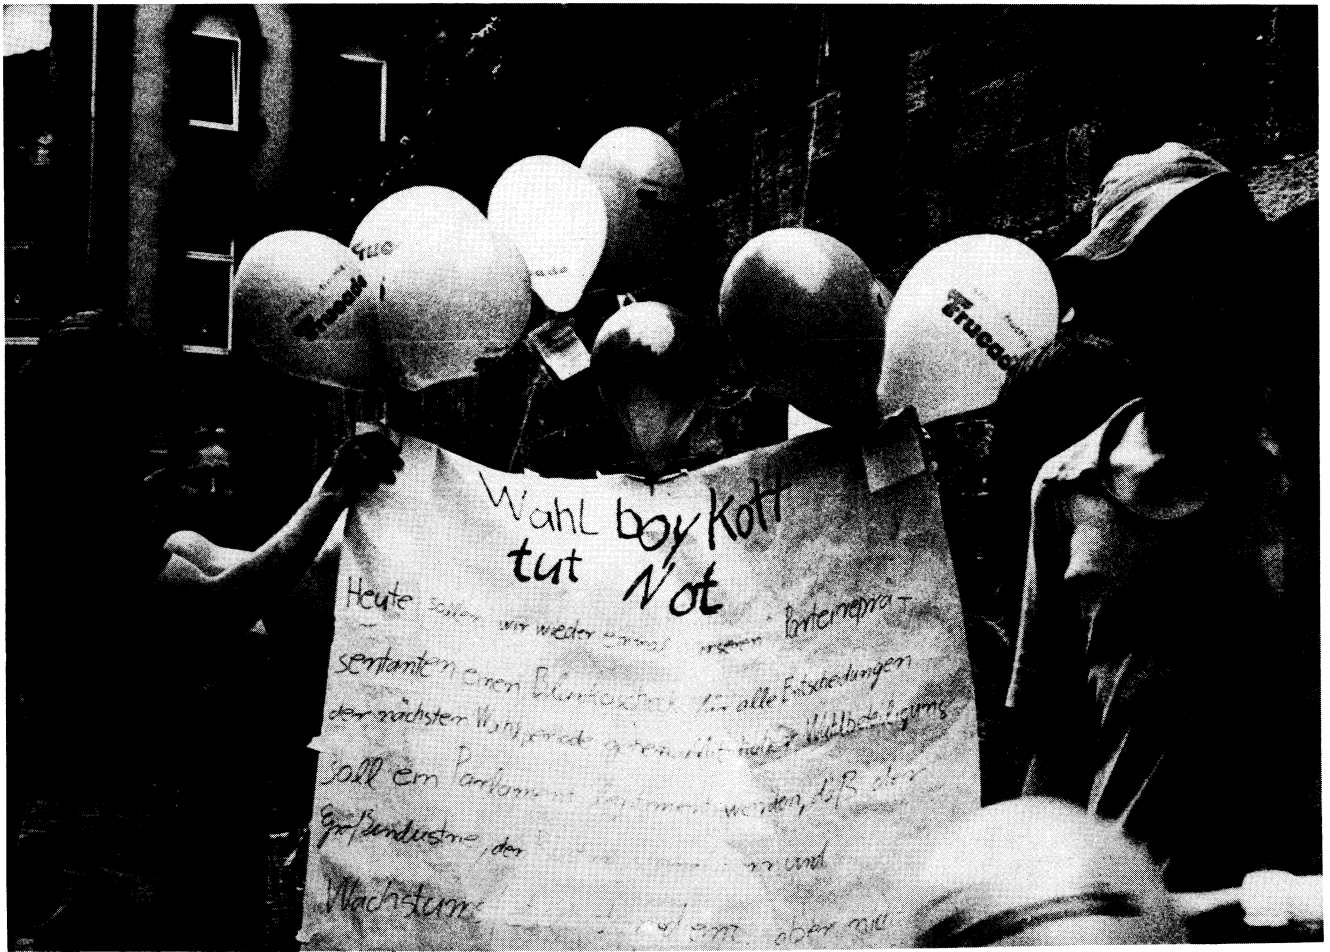 Trucade
Truc
Trucad
Wahl boykott
tut Not
Heute sollen wir wieder einmal unseren Parteireprä-
sentanten einen Blankoscheck für alle Entscheidungen
der nächsten Wahlperiode geben. Mit hoher Wahlbeteiligung
soll ein Parlament legitimiert werden, daß der
Großindustrie, der und
Wachstums aber nur